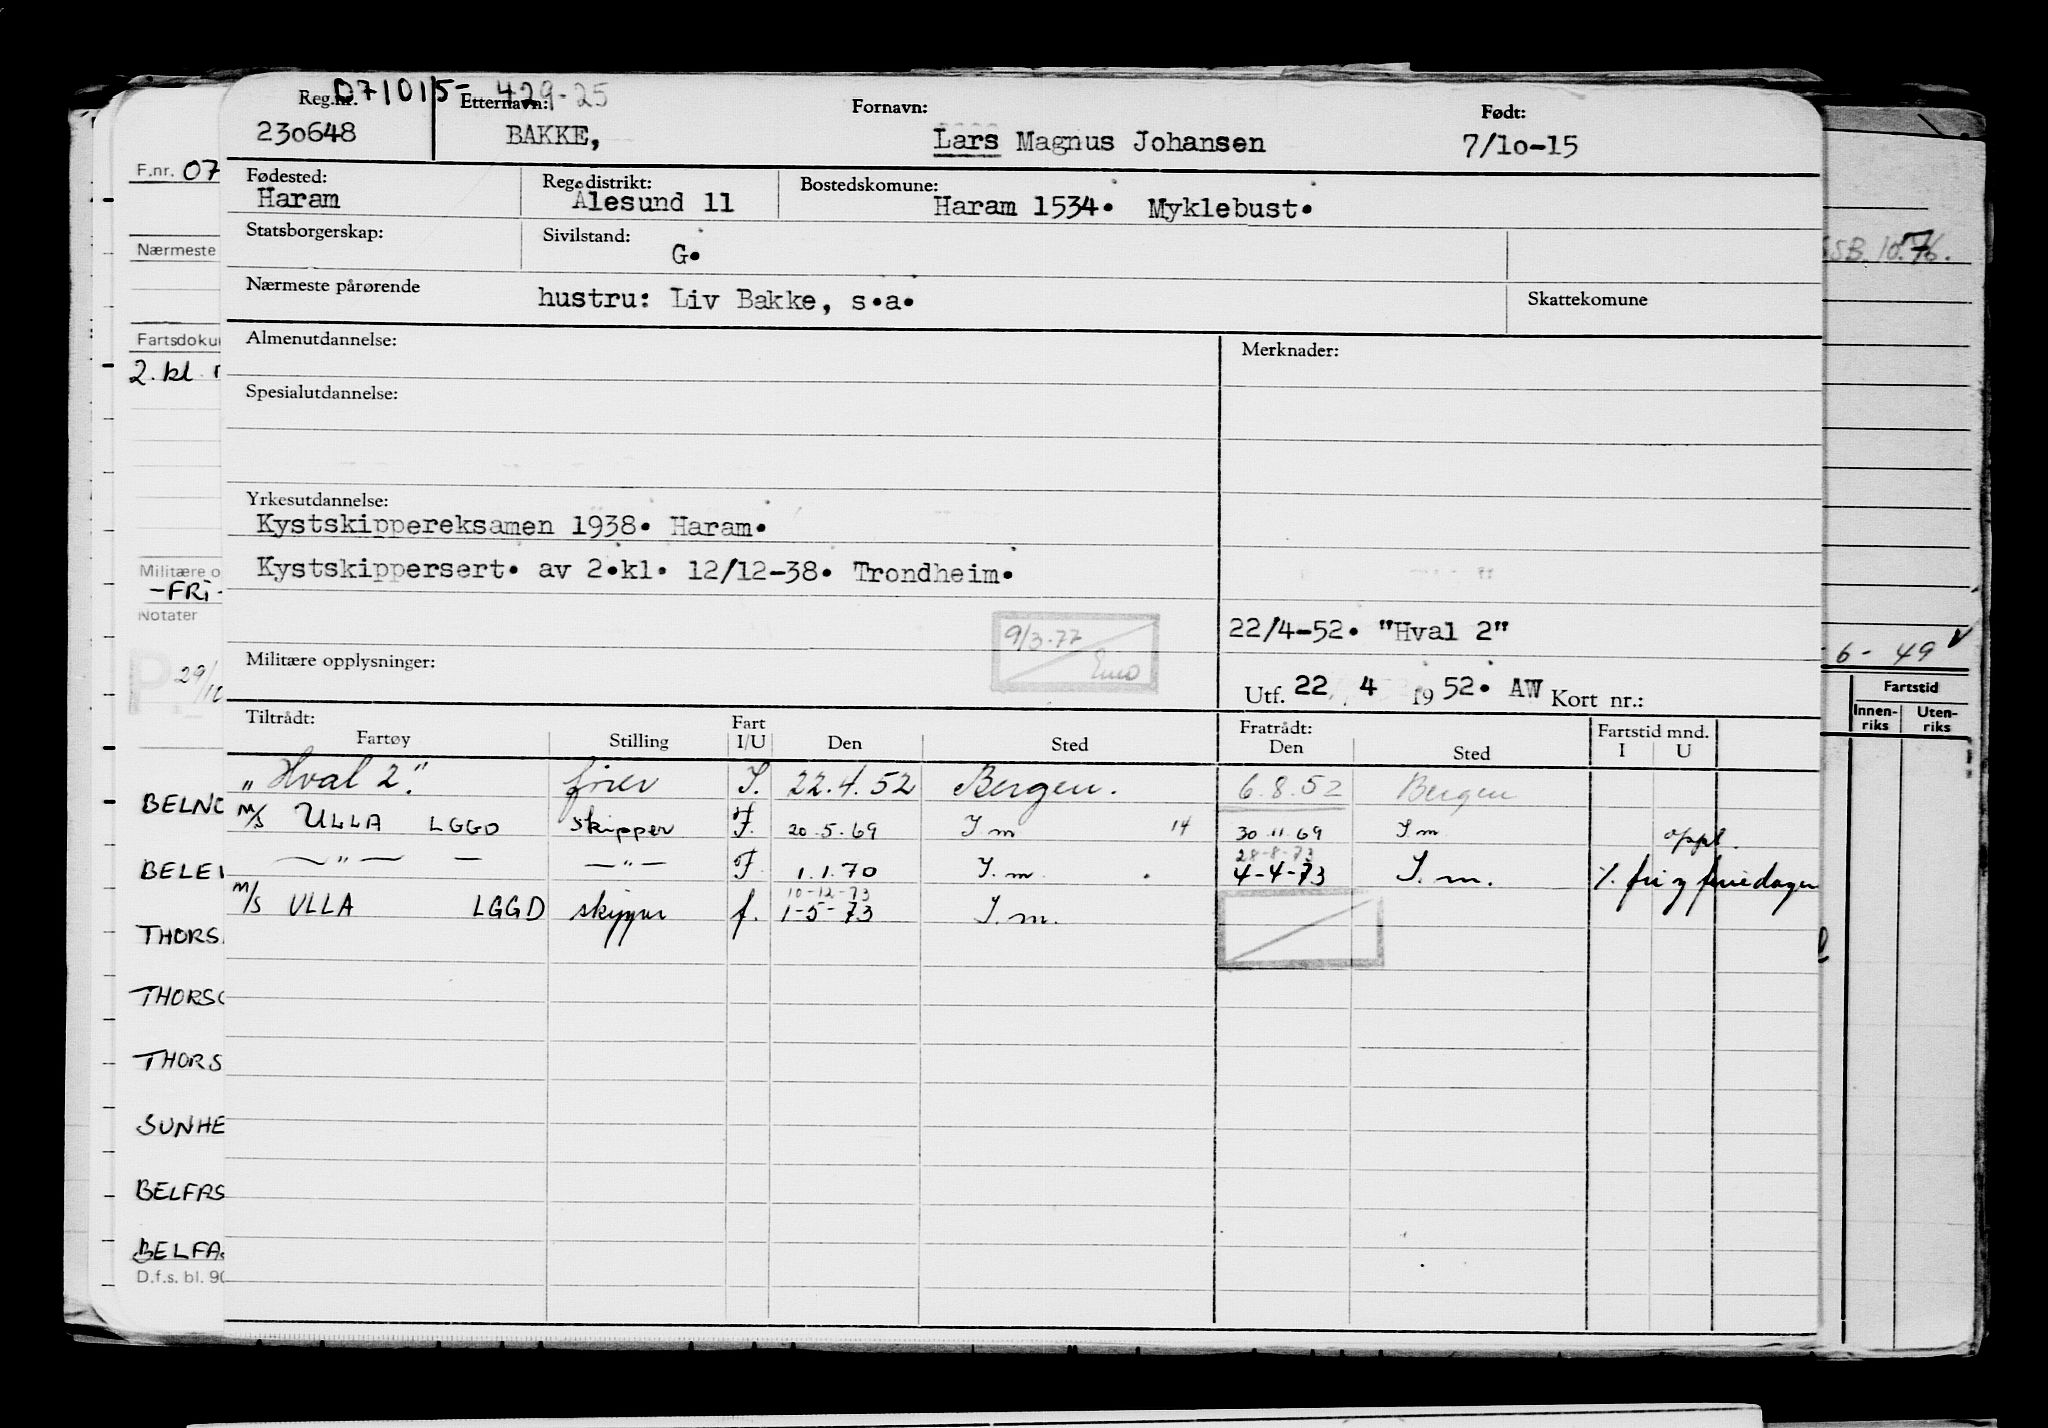 071015- 429-25
Reg.nr. Etternavn: Fornavn: Født:
230648 BAKKE, Lars Magnus Johansen 7/10-15
F.nr. 07
Fødested: Reg.distrikt: Bostedskomune:
Haram Ålesund 11 Haram 1534. Myklebust.
Statsborgerskap: Sivilstand:
G.
Nærmeste
SSB. 10.76.
Nærmeste pårørende hustru: Liv Bakke, s.a. Skattekomune
Fartsdoku
Almenutdannelse: Merknader:
2. kl
Spesialutdannelse:
Yrkesutdannelse:
Kystskippereksamen 1938. Haram.
Kystskippersert. av 2.kl. 12/12-38. Trondheim.
Militære o
-FRI-
Notater
9/3-77
22/4-52. "Hval 2"
6 - 49
Militære opplysninger:
29/10
Utf. 22 4 1952. AW Kort nr.:
Fartstid
Innen-riks Uten-riks
Tiltrådt: Fart Fratrådt: Fartstid mnd.
Fartøy Stilling I/U Den Sted Den Sted I U
"Hval 2". fører I. 22.4.52 Bergen. 6.8.52 Bergen
BELNO
M/S ULLA LGGD Skipper F. 20.5.69 I.m 14 30.11.69 I.m oppl.
28-8-73
BELE
— " — — — " — F 1.1.70 I.m. 4-4-73 I.m. %. fri og feriedager
10-12-73
M/S ULLA LGGD skipper f. 1-5-73 I.m.
THORS
THORSC
THORS
SUNHE
BELFAS
BELFA
D.f.s. bl. 90